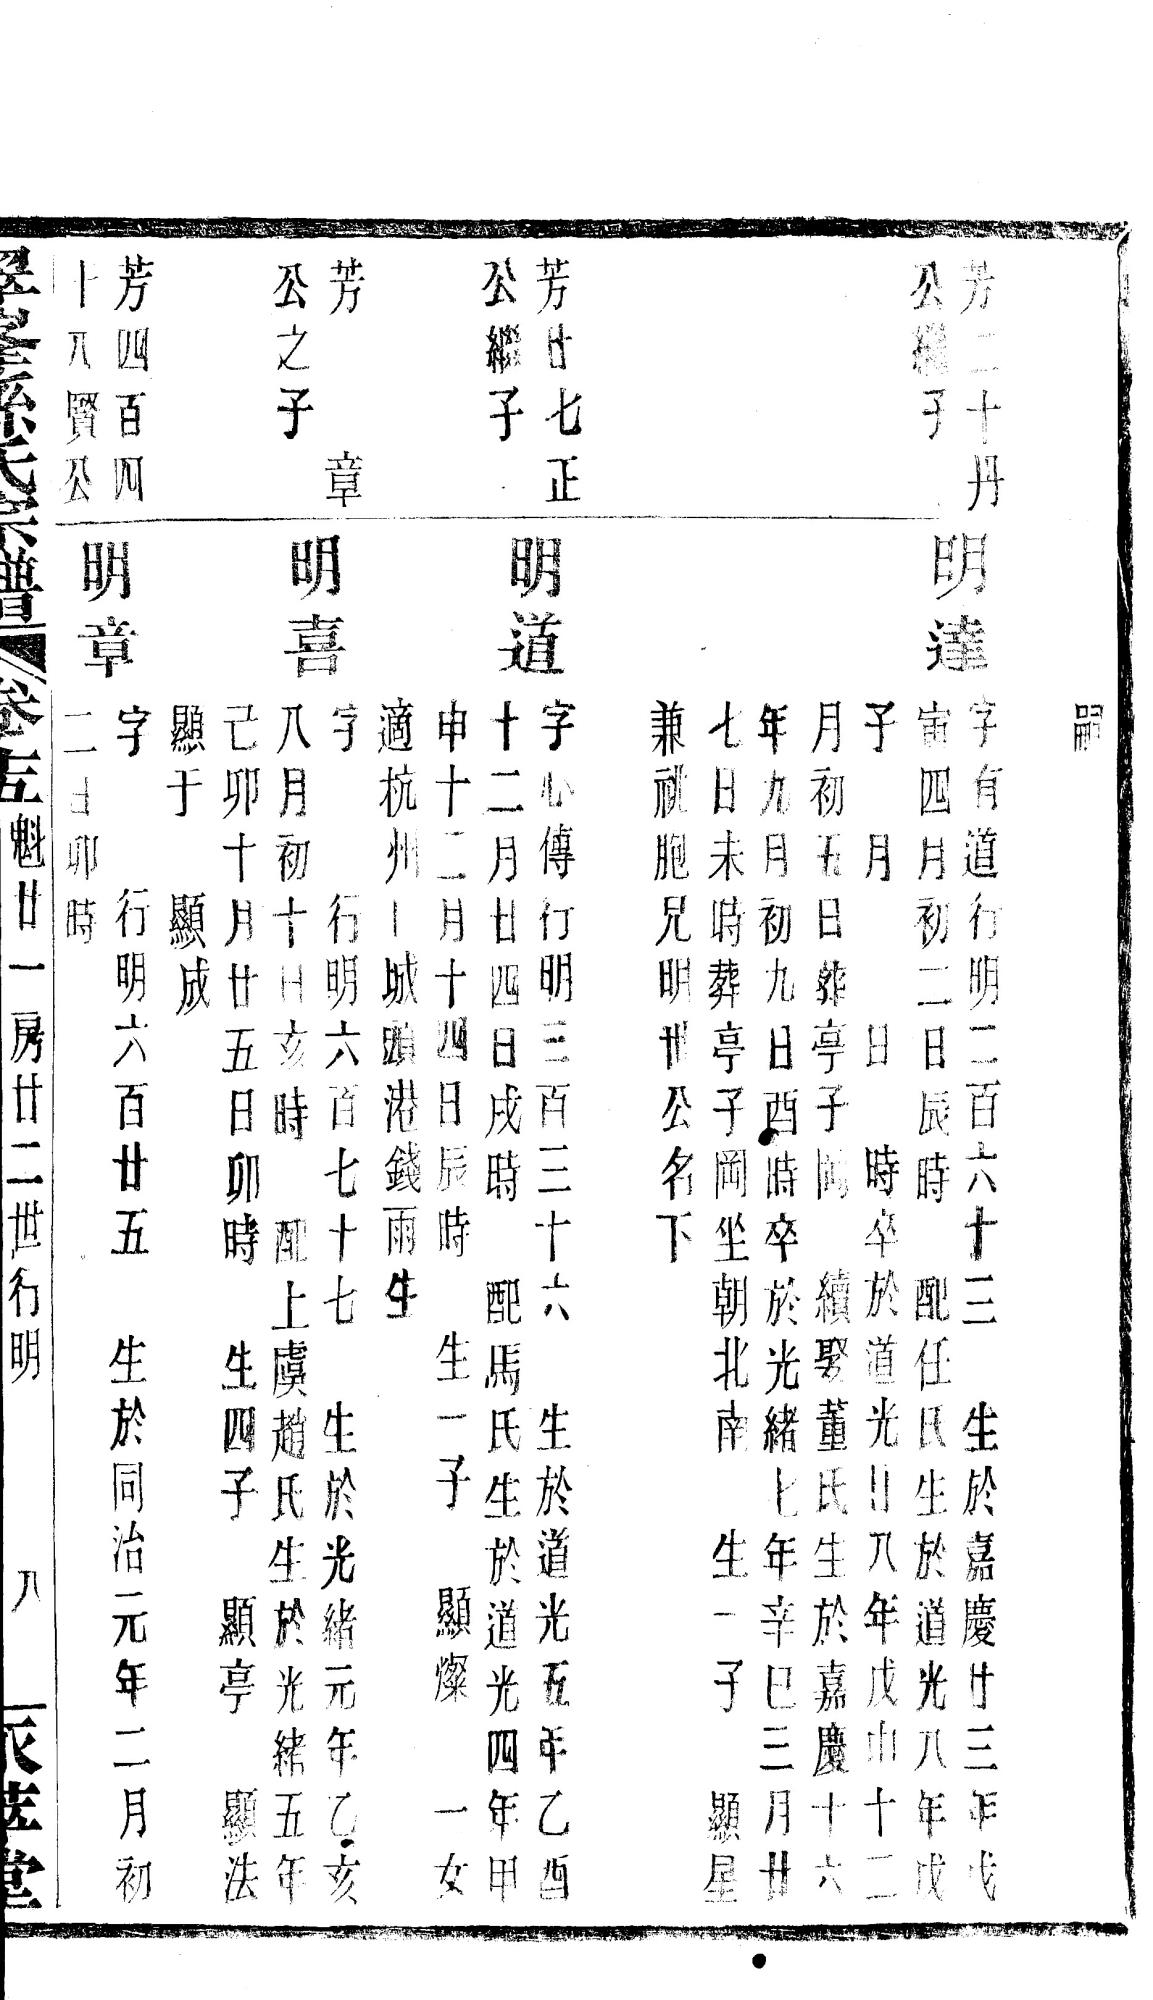 嗣
芳二十丹
公繼子
明達
字有道行明二百六十三 生於嘉慶廿三年戊
寅四月初二日辰時 配任氏生於道光八年戊
子 月 日 時卒於道光廿八年戊申十二
月初五日葬亭子岡 續娶董氏生於嘉慶十六
年九月初九日酉時卒於光緒七年辛巳三月廿
七日未時葬亭子岡坐朝北南 生一子 顯星
兼祧胞兄明世公名下
芳廿七正
公繼子
明道
字心傳行明三百三十六 生於道光五年乙酉
十二月廿四日戌時 配馬氏生於道光四年甲
申十二月十四日辰時 生一子 顯燦 一女
適杭州 城頭港錢雨生
芳 章
公之子
明喜
字 行明六百七十七 生於光緒元年乙亥
八月初十日亥時 配上虞趙氏生於光緒五年
己卯十月廿五日卯時 生四子 顯亭 顯法
顯于 顯成
芳四百四
十八賢公
明章
字 行明六百廿五 生於同治元年二月初
二日卯時
孫氏宗譜
魁廿一房廿二世行明
八
堂